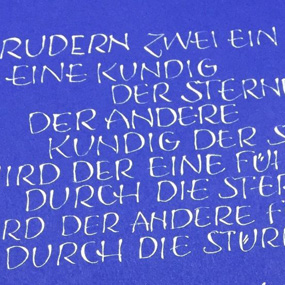 RUDERN ZWEI EIN
EINE KUNDIG
DER STERNE
DER ANDERE
KUNDIG DER S
WIRD DER EINE FÜH
DURCH DIE STER
RD DER ANDERE F
DURCH DIE STÜR